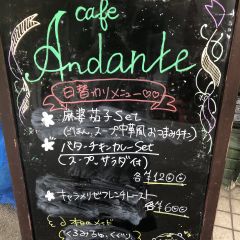 cafe
Andante
日替わりメニュー♡♡
麻婆茄子Set
(ごはん、スープ中華風おつまみチキン)
バターチキンカレーSet
(スープ、サラダ付)
各¥1200
キャラメリゼフレンチトースト
各¥600